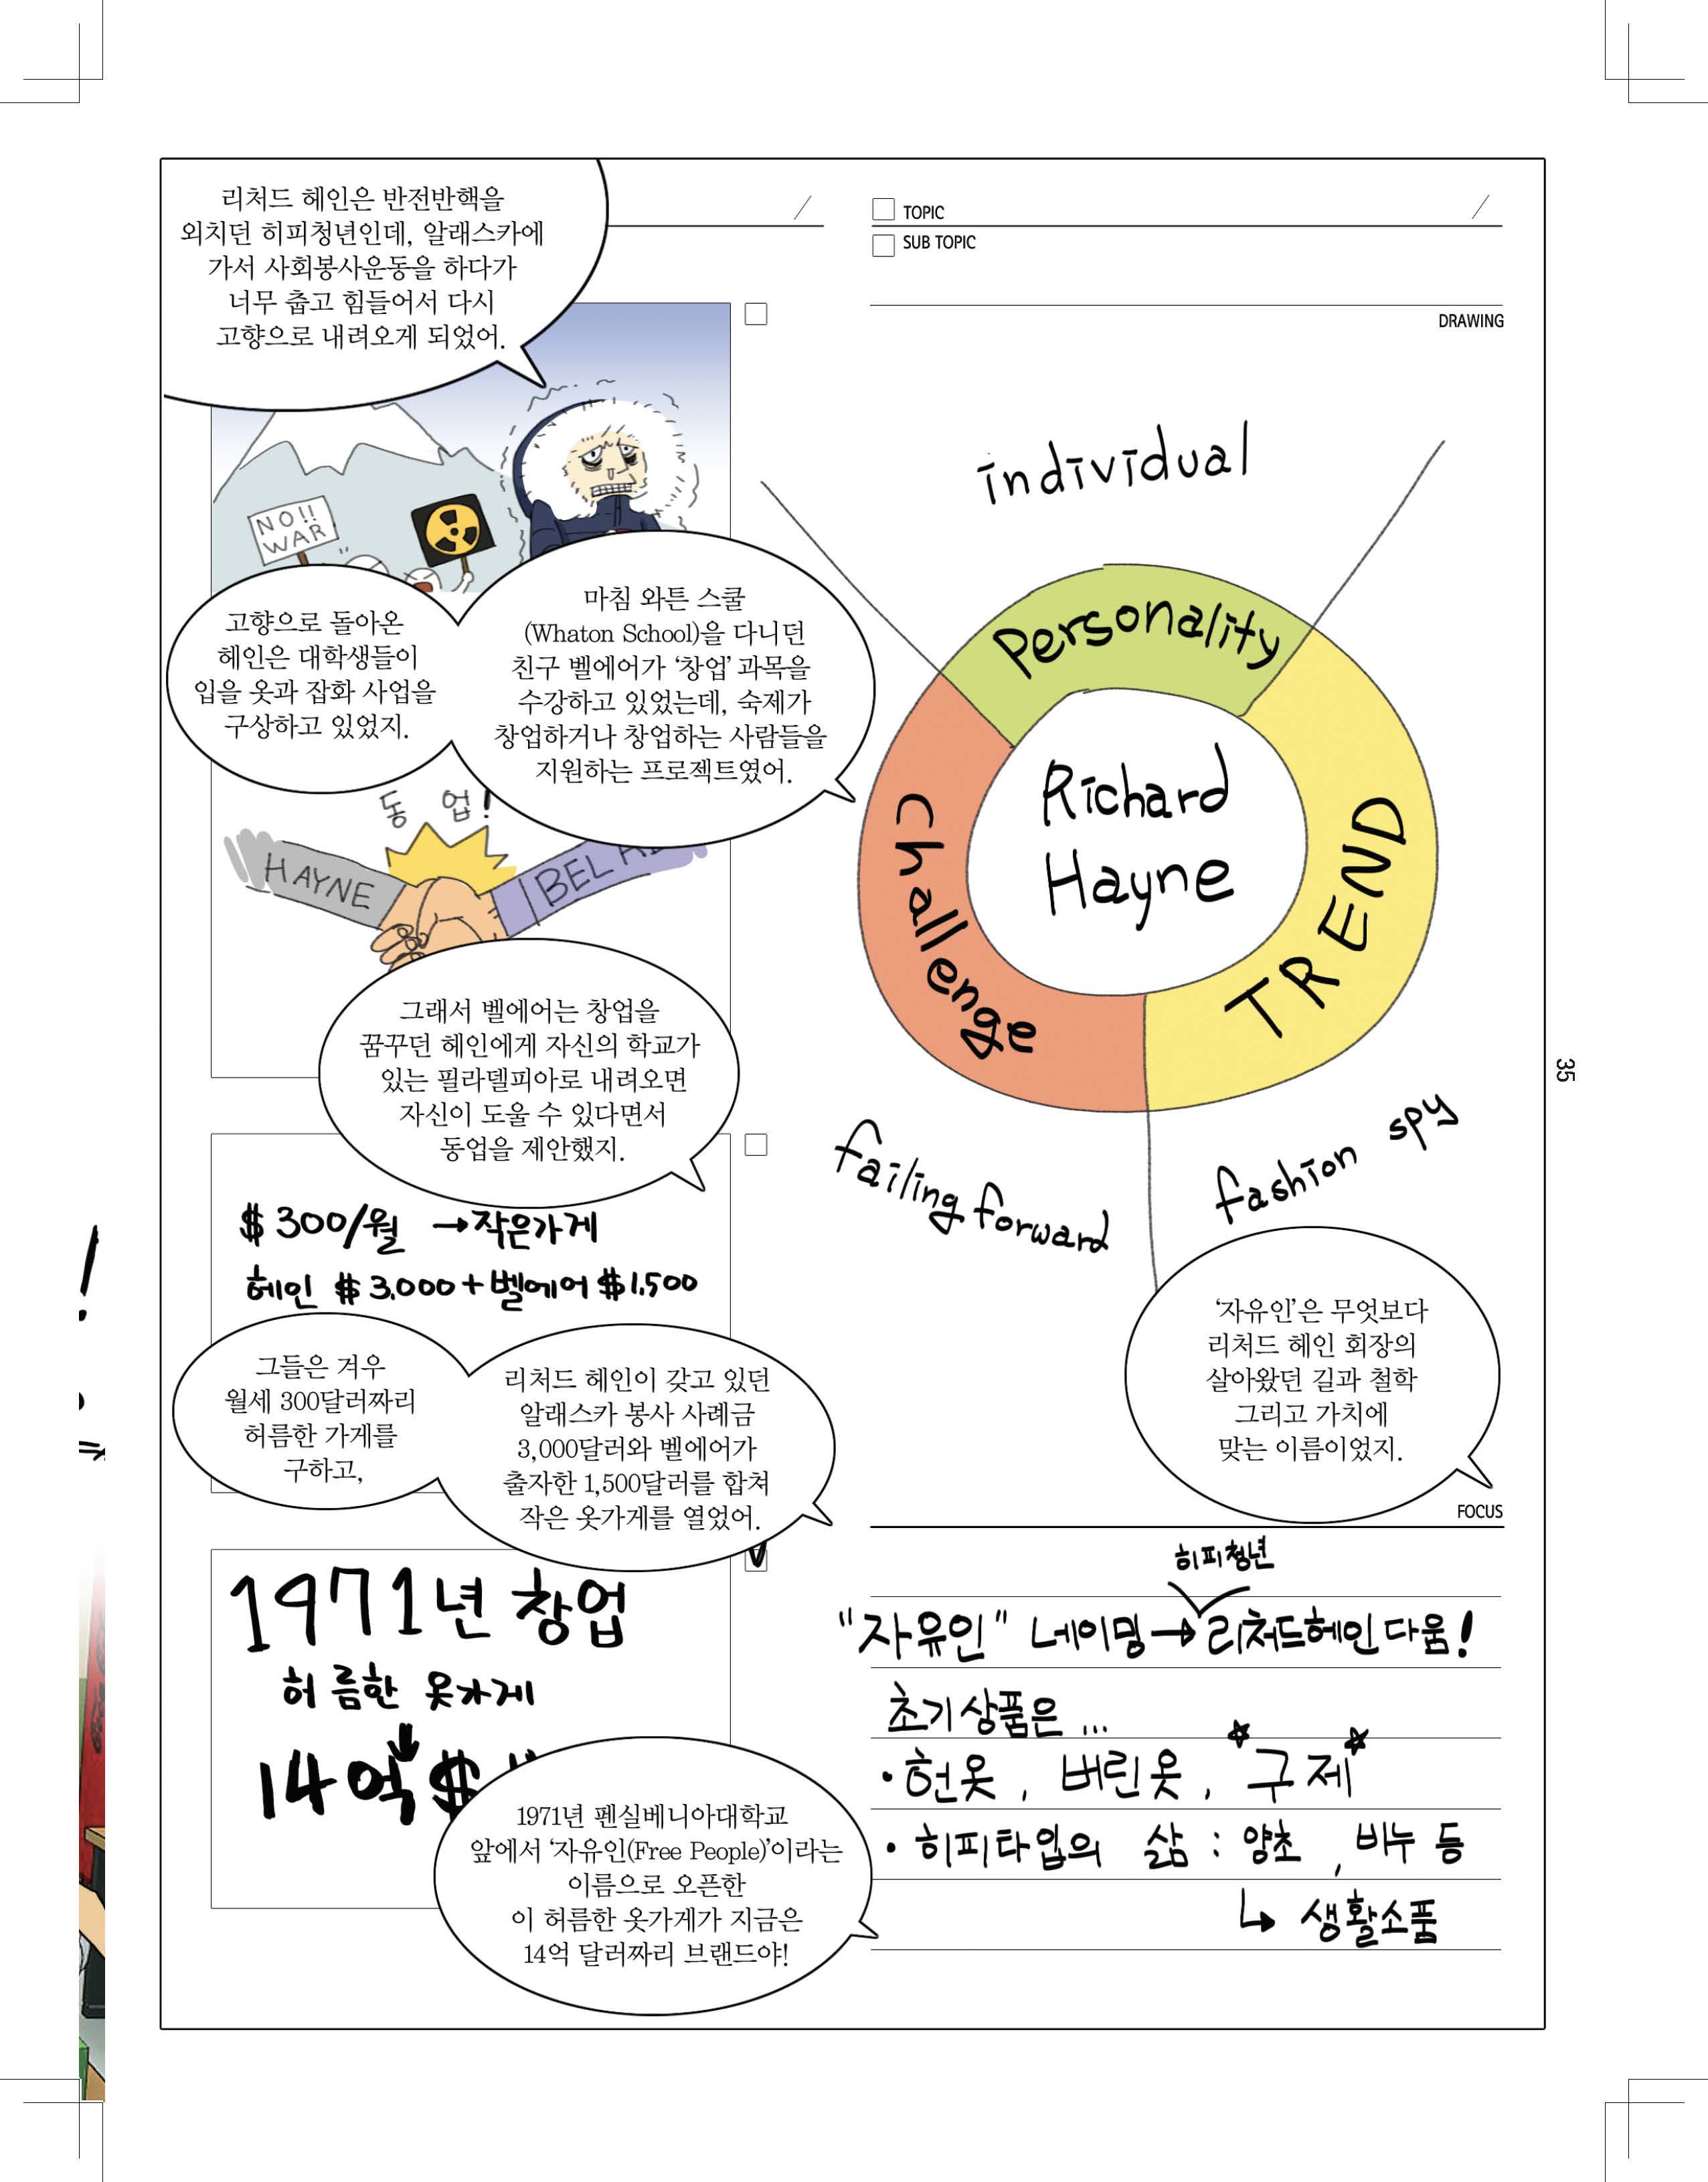 리처드 헤인은 반전반핵을
외치던 히피청년인데, 알래스카에
가서 사회봉사운동을 하다가
너무 춥고 힘들어서 다시
고향으로 내려오게 되었어.
NO!!
WAR
고향으로 돌아온
헤인은 대학생들이
입을 옷과 잡화 사업을
구상하고 있었지.
마침 와튼 스쿨
(Whaton School)을 다니던
친구 벨에어가 ‘창업’ 과목을
수강하고 있었는데, 숙제가
창업하거나 창업하는 사람들을
지원하는 프로젝트였어.
동 업!
HAYNE
BEL
그래서 벨에어는 창업을
꿈꾸던 헤인에게 자신의 학교가
있는 필라델피아로 내려오면
자신이 도울 수 있다면서
동업을 제안했지.
$300/월 →작은가게
헤인 $3.000+벨에어$1.500
그들은 겨우
월세 300달러짜리
허름한 가게를
구하고,
리처드 헤인이 갖고 있던
알래스카 봉사 사례금
3,000달러와 벨에어가
출자한 1,500달러를 합쳐
작은 옷가게를 열었어.
1971년 창업
허름한 옷가게
14억$
1971년 펜실베니아대학교
앞에서 ‘자유인(Free People)’이라는
이름으로 오픈한
이 허름한 옷가게가 지금은
14억 달러짜리 브랜드야!
TOPIC
SUB TOPIC
DRAWING
individual
Personality
Richard
Hayne
Challenge
TREND
failing forward
fashion spy
‘자유인’은 무엇보다
리처드 헤인 회장의
살아왔던 길과 철학
그리고 가치에
맞는 이름이었지.
FOCUS
히피청년
"자유인" 네이밍→리처드헤인다움!
초기상품은 ...
• 헌옷, 버린옷, 구제
• 히피타입의 삶 : 양초, 비누 등
↳ 생활소품
35